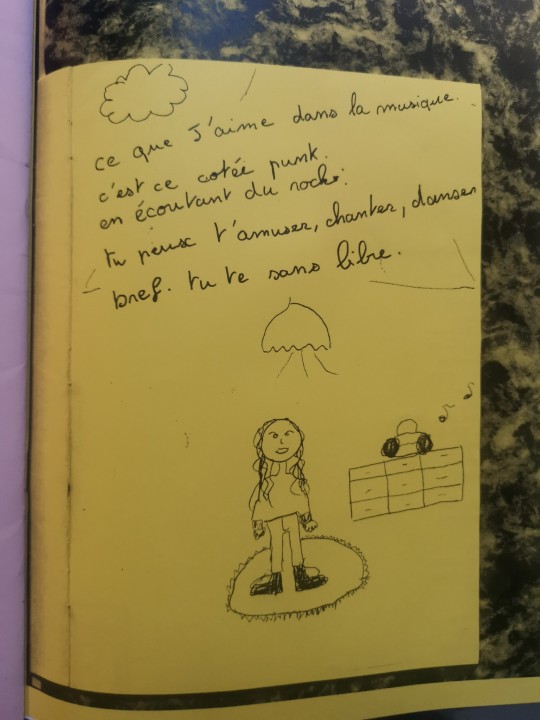 ce que J'aime dans la musique.
c'est ce cotéé punk.
en écoutant du rock.
tu peux t'amuser, chanter, danser
bref. tu te sans libre.